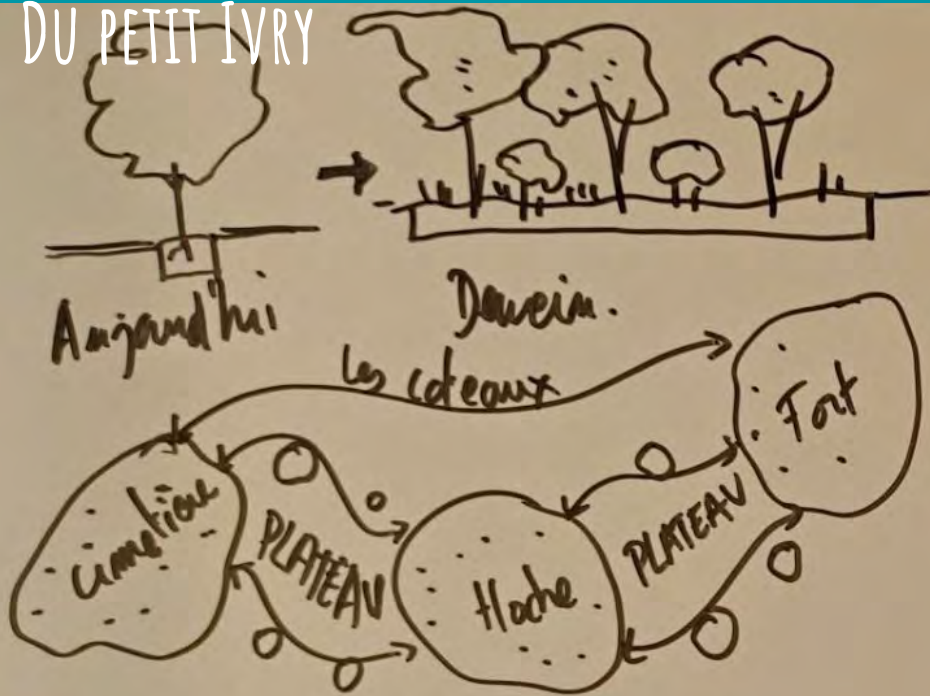 DU PETIT IVRY
Aujourd'hui
Demain.
Les coteaux
Fort
Cimetière
PLATEAU
PLATEAU
Hoche